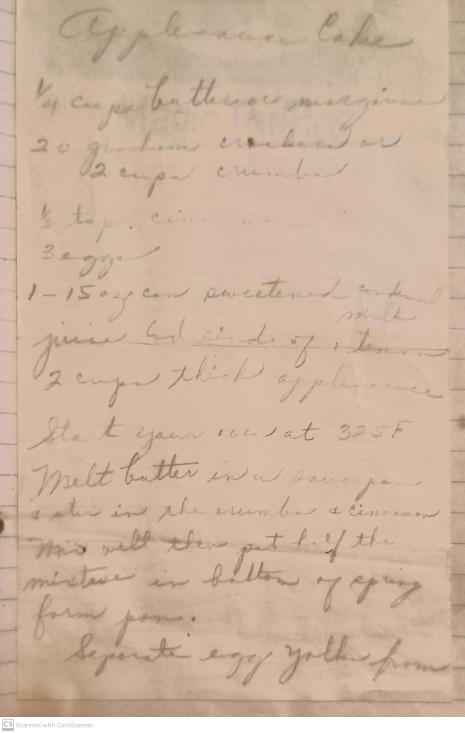 Applesauce Cake
1/4 cups butter or margarine
20 graham crackers or
2 cups crumbs
tsp. cinnamon
3 eggs
1 - 15 oz can sweetened condensed
milk
juice and rinds of 1 lemon
2 cups thick applesauce
Start your oven at 325 F
Melt butter in a saucepan
& stir in the crumbs & cinnamon
Mix well then pat half the
mixture in bottom of spring
form pan.
Separate egg yolks from
CS Scanned with CamScanner